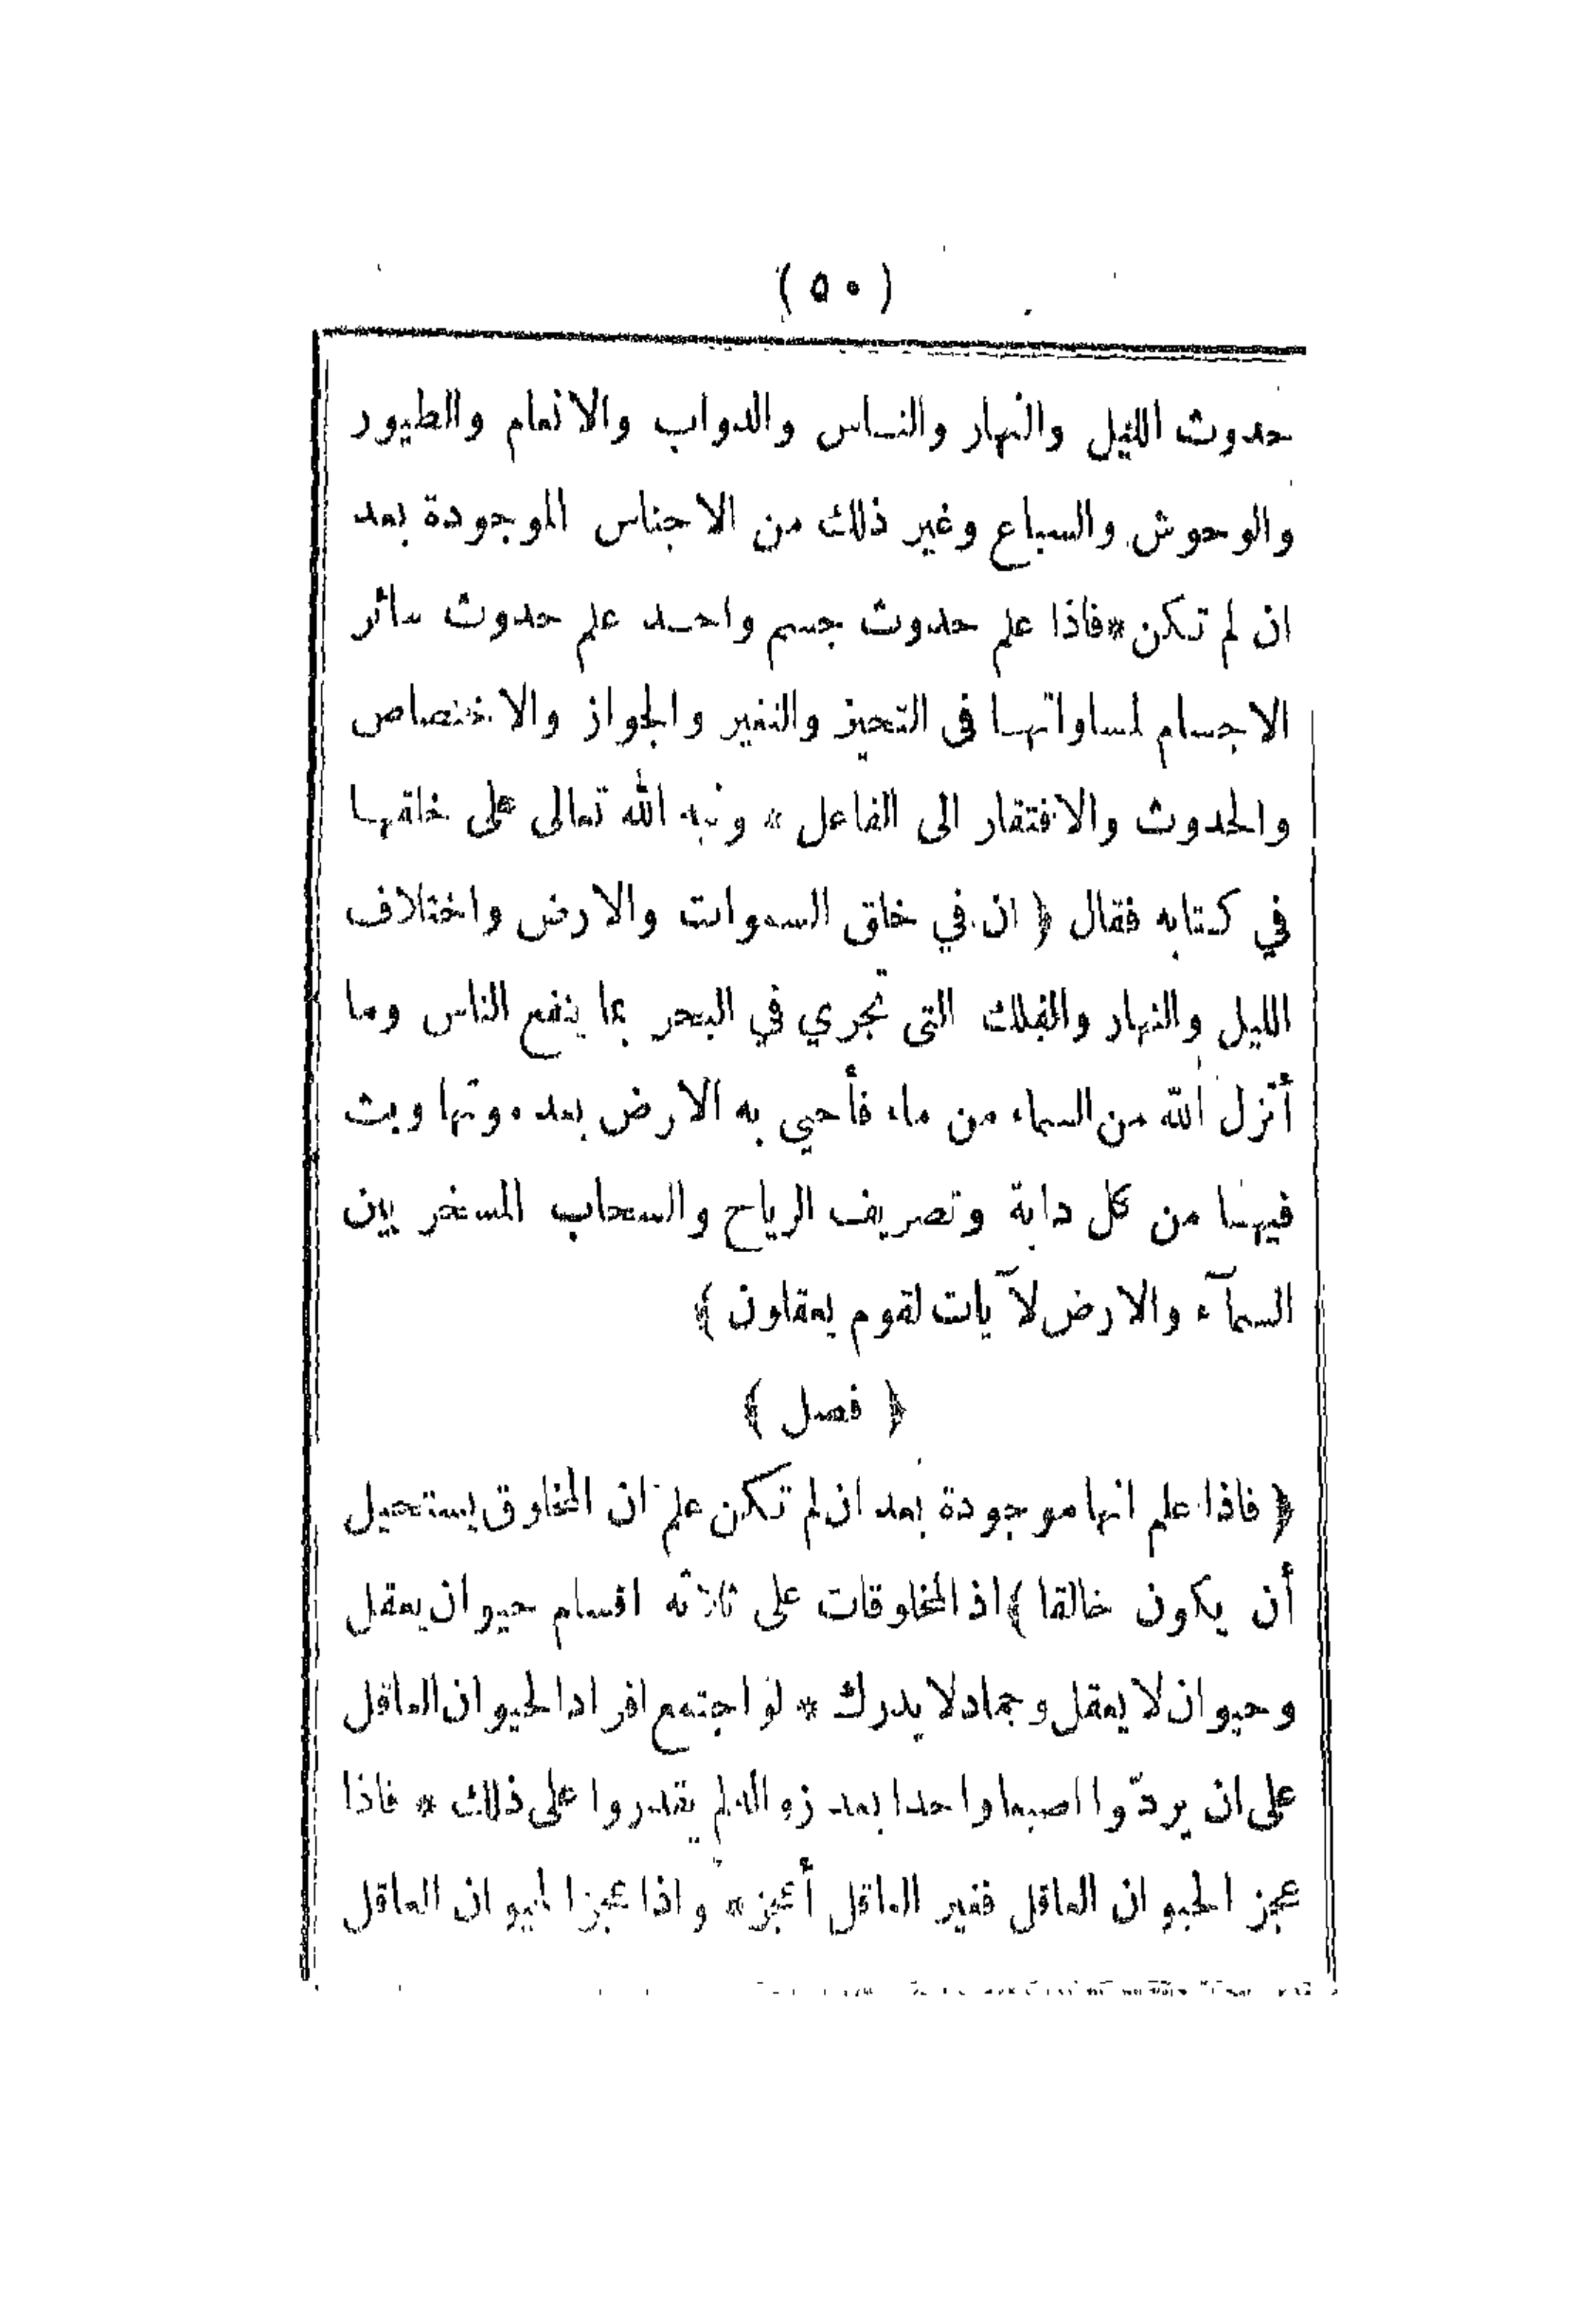 ( ٥٠ )
حدوث الليل والنهار والناس والدواب والانعام والطيور
والوحوش والسباع وغير ذلك من الاجناس الموجودة بعد
ان لم تكن * فاذا علم حدوث جسم واحد علم حدوث سائر
الاجسام لمساواتها فى التحيز والتغير والجواز والاختصاص
والحدوث والافتقار الى الفاعل * ونبه الله تعالى على خلقها
في كتابه فقال ﴿ ان في خلق السموات والارض واختلاف
الليل والنهار والفلك التى تجري في البحر بما ينفع الناس وما
أنزل الله من السماء من ماء فأحيي به الارض بعد موتها وبث
فيها من كل دابة وتصريف الرياح والسحاب المسخر بين
السمآء والارض لآيات لقوم يعقلون ﴾
﴿ فصل ﴾
﴿ فاذا علم انها موجودة بعد ان لم تكن علم ان المخلوق يستحيل
أن يكون خالقا ﴾ اذ المخلوقات على ثلاثه اقسام حيوان يعقل
وحيوان لا يعقل وجماد لا يدرك * لو اجتمع افراد الحيوان العاقل
على ان يردّوا اصبعا واحدا بعد زواله لم يقدروا على ذلك * فاذا
عجز الحيوان العاقل فغير العاقل أعجز * واذا عجز الحيوان العاقل